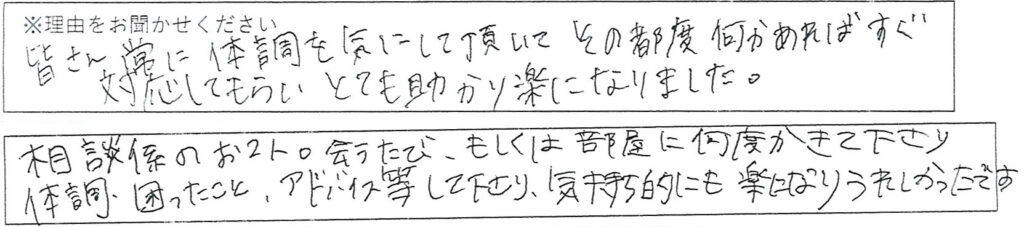 ※理由をお聞かせください
皆さん常に体調を気にして頂いてその都度何かあればすぐ
対応してもらいとても助かり楽になりました。
相談係のお2人。会うたび、もしくは部屋に何度かきて下さり
体調、困ったこと、アドバイス等して下さり、気持ち的にも楽になりうれしかったです